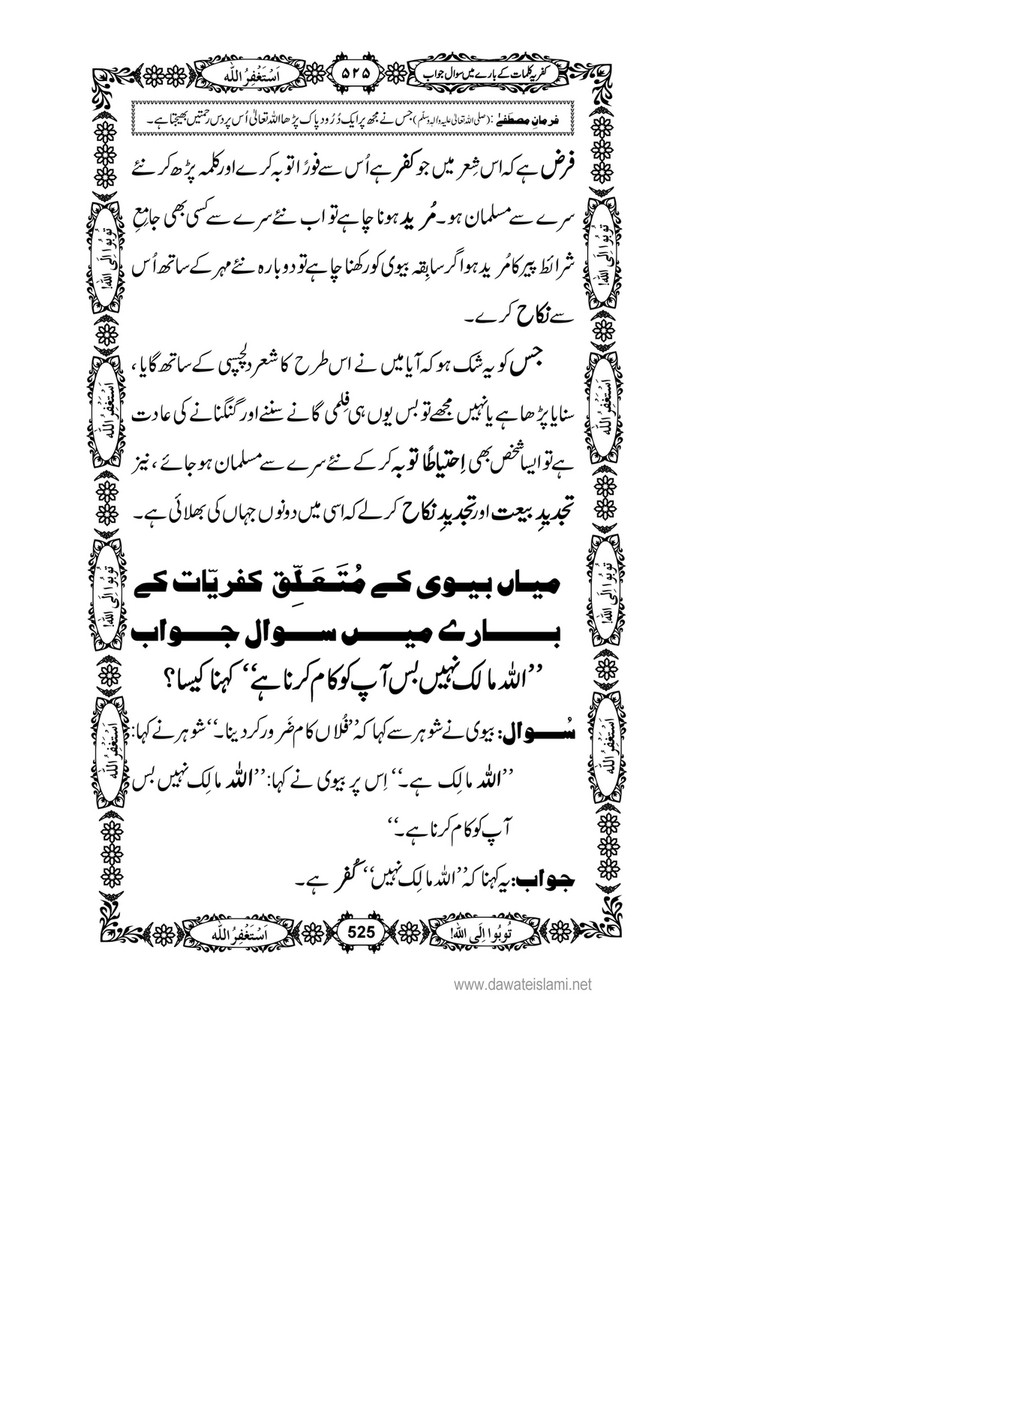 کفریہ کلمات کے بارے میں سوال جواب
۵۲۵
اَسْتَغْفِرُ اللّٰه
فرمانِ مصطفےٰ : (صلی اللہ تعالیٰ علیہ والہ وسلم) جس نے مجھ پر ایک دُرُود پاک پڑھا اللہ تعالیٰ اُس پر دس رحمتیں بھیجتا ہے۔
فرض ہے کہ اس شِعر میں جو کفر ہے اُس سے فورًا توبہ کرے اور کلمہ پڑھ کر نئے
سرے سے مسلمان ہو۔ مُرید ہونا چاہے تو اب نئے سرے سے کسی بھی جامِعِ
شرائط پیر کا مُرید ہو اگر سابِقہ بیوی کو رکھنا چاہے تو دوبارہ نئے مہر کے ساتھ اُس
سے نکاح کرے۔
جس کو یہ شک ہو کہ آیا میں نے اس طرح کا شعر دلچسپی کے ساتھ گایا،
سنایا پڑھا ہے یا نہیں مجھے تو بس یوں ہی فِلمی گانے سننے اور گنگنانے کی عادت
ہے تو ایسا شخص بھی اِحتیاطًا توبہ کر کے نئے سرے سے مسلمان ہو جائے، نیز
تجدیدِ بیعت اور تجدیدِ نکاح کر لے کہ اسی میں دونوں جہاں کی بھلائی ہے۔
میاں بیوی کے مُتَعَلِّق کفریّات کے
بارے میں سوال جواب
’’اللہ مالک نہیں بس آپ کو کام کرنا ہے‘‘ کہنا کیسا؟
سُوال: بیوی نے شوہر سے کہا کہ ’’فُلاں کام ضَرور کر دینا۔‘‘ شوہر نے کہا:
’’اللہ مالِک ہے۔‘‘ اِس پر بیوی نے کہا: ’’اللہ مالِک نہیں بس
آپ کو کام کرنا ہے۔‘‘
جواب: یہ کہنا کہ ’’اللہ مالِک نہیں‘‘ کُفر ہے۔
تُوبُوا اِلَى اللّٰه!
525
اَسْتَغْفِرُ اللّٰه
تُوبُوا اِلَى اللّٰه!
اَسْتَغْفِرُ اللّٰه
تُوبُوا اِلَى اللّٰه!
اَسْتَغْفِرُ اللّٰه
تُوبُوا اِلَى اللّٰه!
اَسْتَغْفِرُ اللّٰه
تُوبُوا اِلَى اللّٰه!
اَسْتَغْفِرُ اللّٰه
www.dawateislami.net